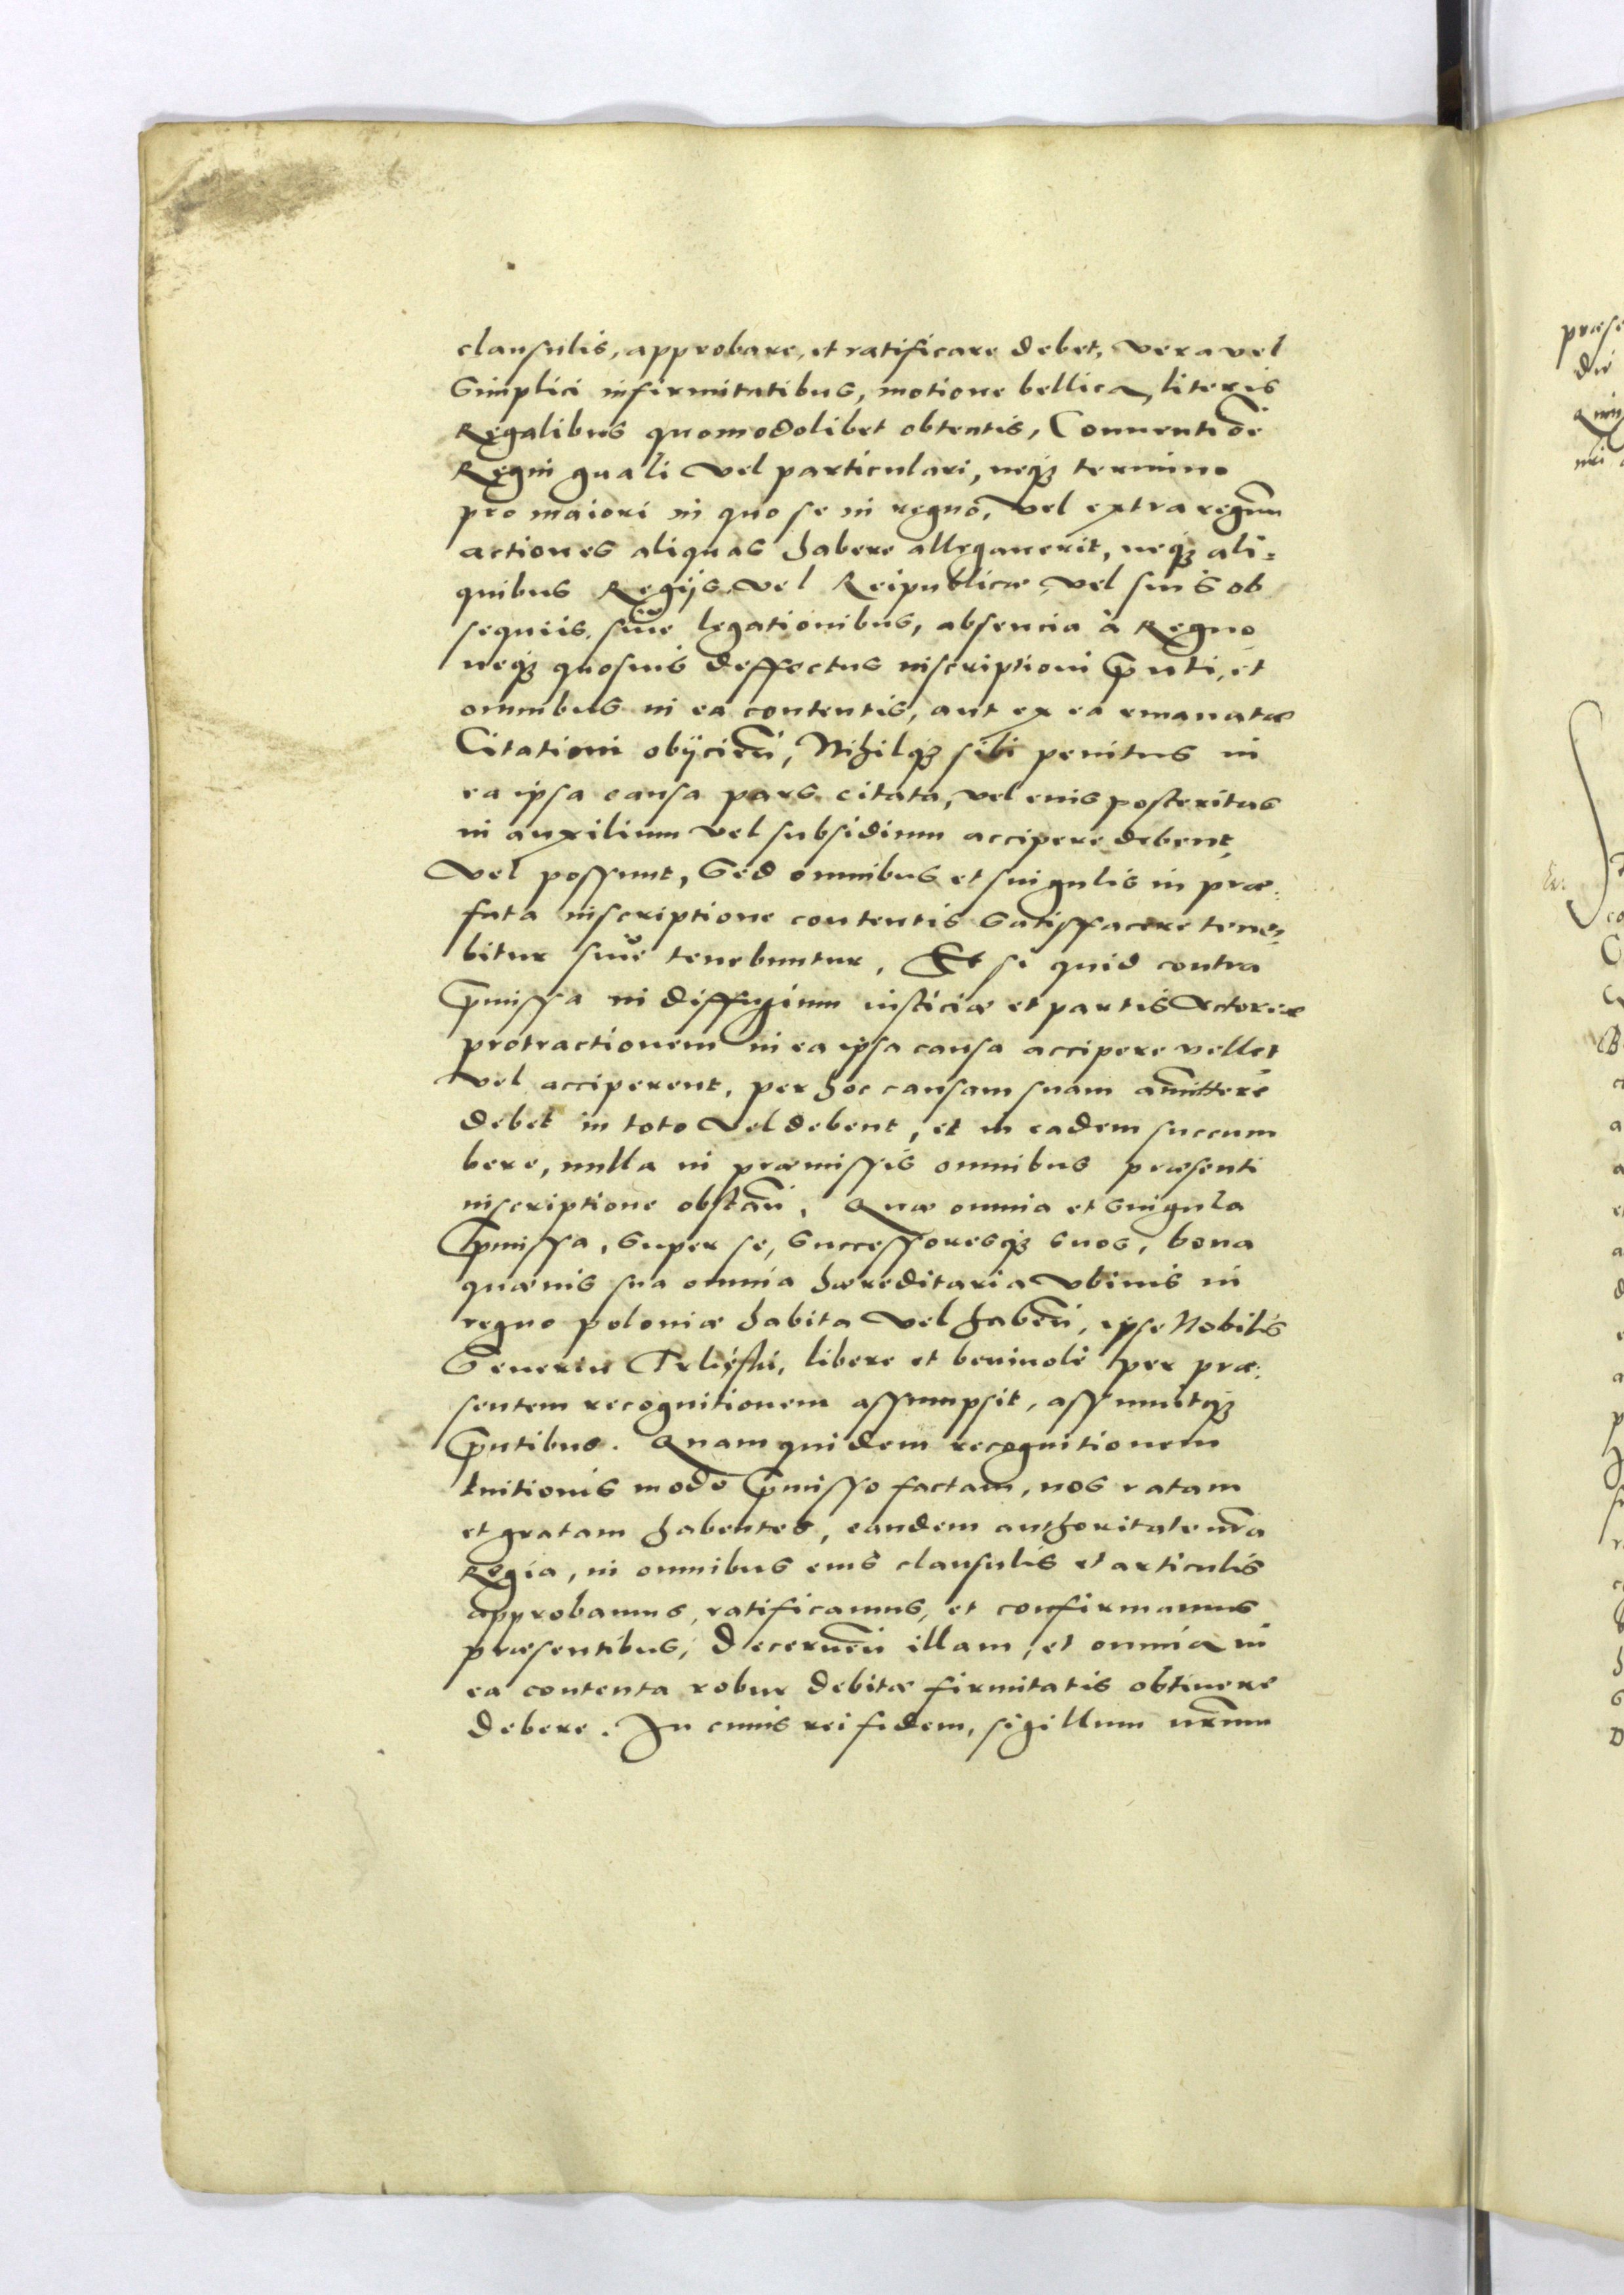 clausulis, approbare, et ratificare debet, vera vel
simplici infirmitatibus, motione bellica, literis
Regalibus quomodolibet obtentis, Conuentiõe
Regni gn̄ali vel particulari, neqꝫ termino
pro maiori in quo se in regno, vel extra regnū
actiones aliquas habere allegauerit, neqꝫ ali-
quibus Regijs, vel Reipublicæ, vel suis ob
sequiis, siue legationibus, absencia à Regno
neqꝫ quosuis deffectus inscriptioni p̃nti, et
omnibus in ea contentis, aut ex ea emanatæ
Citationi obijcien̄, Nihilqꝫ sibi penitus in
ea ipsa causa pars citata, vel euis posteritas
in auxilium vel subsidium accipere debent,
vel possunt, Sed omnibus et singulis in præ-
fata inscriptione contentis satisfacere tene-
bitur siue tenebuntur. Et si quid contra
p̃missa in diffugium iusticiæ et partis Actoreæ
protractionem in ea ipsa causa accipere vellet
vel acciperent, per hoc causam suam amittere
debet in toto vel debent, et in eadem succum
bere, nulla in præmissis omnibus præsenti
inscriptione obstan̄. Quæ omnia et singula
p̃missa, super se, Successoresqꝫ suos, bona
quæuis sua omnia hæreditaria vbiuis in
regno poloniæ habita vel haben̄, ipse Nobilis
Seuerin libere et beniuole per præ-
sentem recognitionem assumpsit, assumitqꝫ
p̃ntibus. Quam quidem recognitionem
tuitionis modo p̃misso factam, nos ratam
et gratam habentes, eandem authoritate nr̃a
Regia, in omnibus eius clausulis et articulis
approbamus, ratificamus, et confirmamus
præsentibus, Decernen̄ illam, et omnia in
ea contenta robur debitæ firmitatis obtinere
debere. In cuius rei fidem, sigillum nr̃um